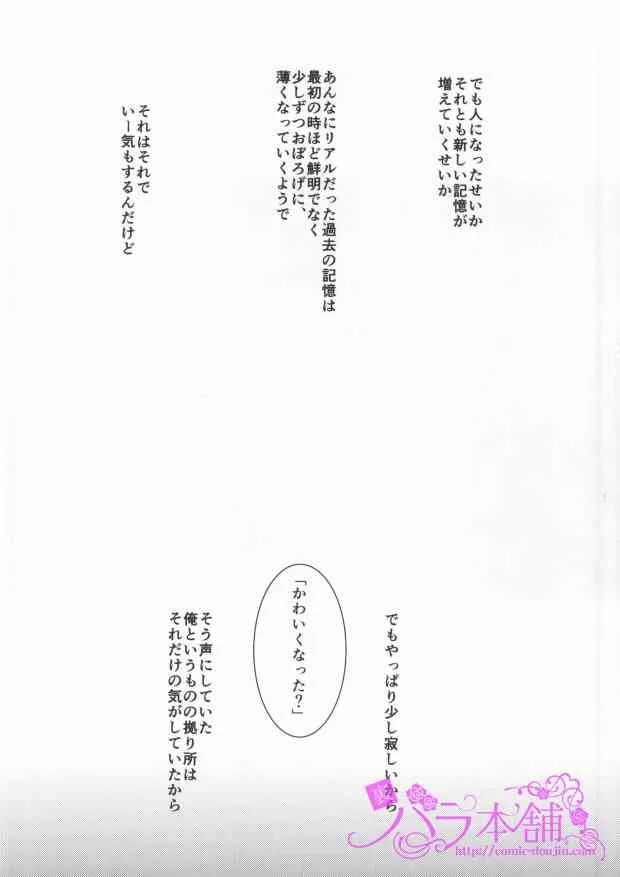 でも人になったせいか
それとも新しい記憶が
増えていくせいか
あんなにリアルだった過去の記憶は
最初の時ほど鮮明でなく
少しずつおぼろげに、
薄くなっていくようで
それはそれで
いー気もするんだけど
でもやっぱり少し寂しいから
「かわいくなった？」
そう声にしていた
俺というものの拠り所は
それだけの気がしていたから
裏
バラ本舗
http://comic-doujin.com/